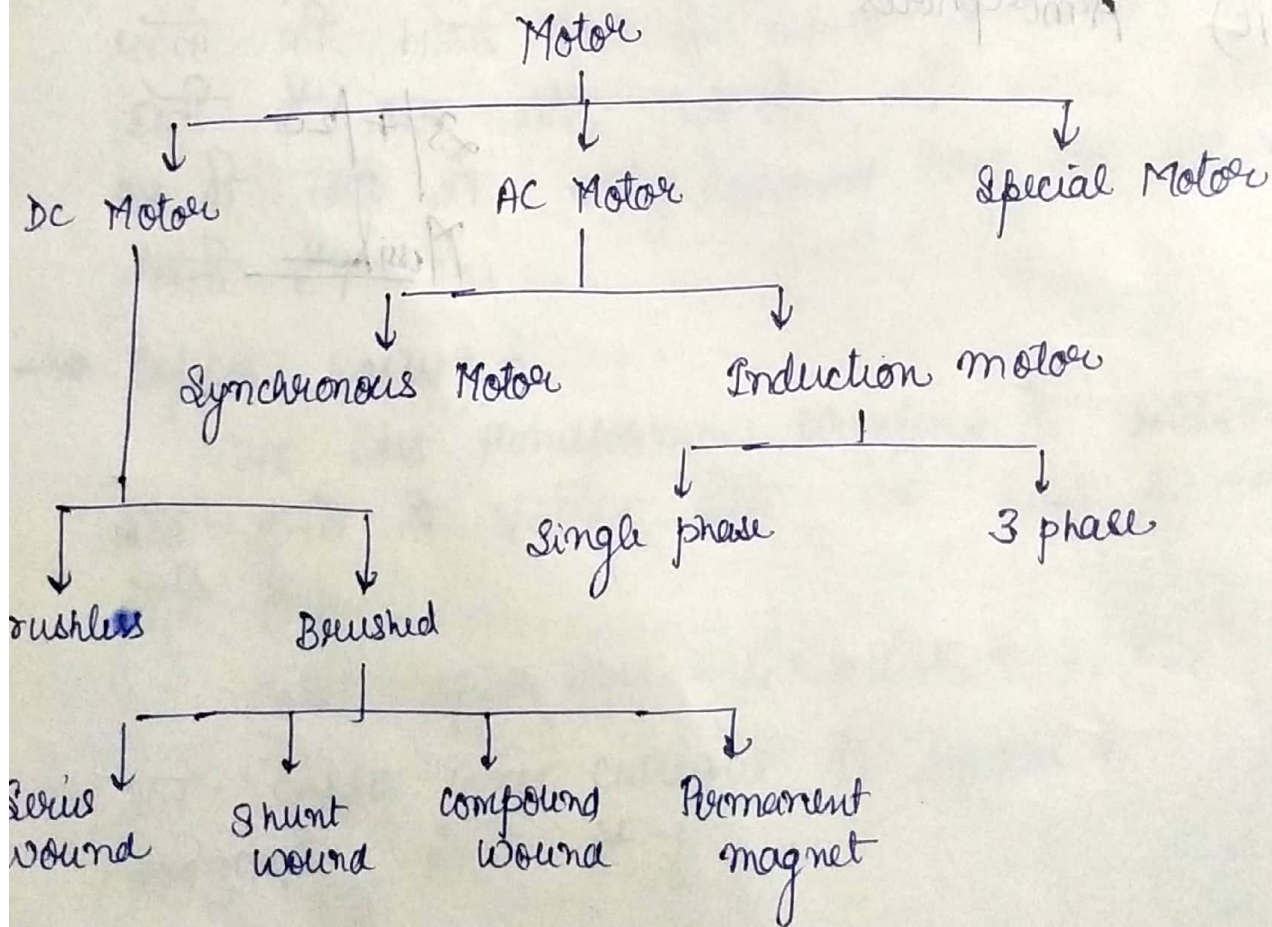 Motor
DC Motor
AC Motor
Special Motor
Synchronous Motor
Induction motor
Single phase
3 phase
rushless
Brushed
Series
wound
Shunt
wound
compound
wound
Permanent
magnet